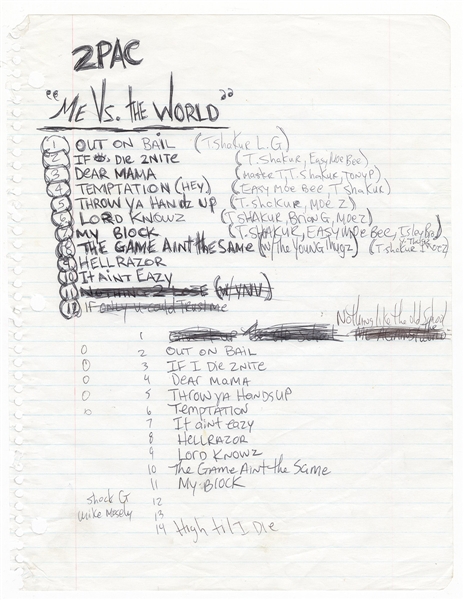 2PAC
"ME Vs. the WORLD"
1 OUT ON BAIL (T. Shakur L.G)
2 IF I DIE 2NITE (T. Shakur, Easy Moe Bee)
3 DEAR MAMA (Master T, T. Shakur, Tony P)
4 TEMPTATION (HEY) (EASY MOE BEE T Shakur)
5 THROW YA HANDZ UP (T. Shakur, MOE Z)
6 LORD KNOWZ (T SHAKUR, Brian G, MOEZ)
7 MY BLOCK (T. SHAKUR, EASY MOE BEE,
8 THE GAME AINT the SAME (w/ The YOUNG Thugz) (T Shakur
9 HELLRAZOR
10 It AINT EAZY
11 NOTHING 2 LOSE (w/ YNV)
12 If only u could trust me
Nothing like the old School
1
0 2 OUT ON BAIL
0 3 IF I DIE 2NITE
0 4 Dear MAMA
0 5 THROW YA HANDS UP
0 6 Temptation
7 It aint eazy
8 HELLRAZOR
9 LORD KNOWZ
10 The Game Aint the Same
11 My Block
Shock G 12
mike Mosely 13
14 High til I Die